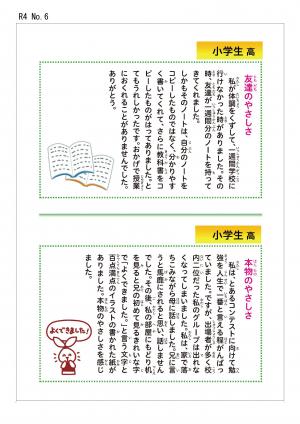 R4 No.6
小学生 高
友達のやさしさ
私が体調をくずして、一週間学校に
行けなかった時がありました。その
時、友達が一週間分のノートを持って
きてくれました。
しかもそのノートは、自分のノートを
コピーしたものではなく、分かりやす
く書いてくれて、さらに教科書をコ
ピーしたものがはってありました。と
てもうれしかったです。おかげで授業
におくれることがありませんでした。
ありがとう。
小学生 高
本物のやさしさ
私は、とあるコンテストに向けて勉
強を人生で一番と言える程がんばっ
ていました。ですが、出場者が多く校
内二位だった私のグループは出れな
くなってしまいました。私は、家で落
ちこみながら母に話しました。兄に言
うと馬鹿にされると思い、話しません
でした。その後、私の部屋にもどり机
を見ると兄の初めて見るきれいな字
で、「よくできました。」と言う文字と
百点満点のイラストの書かれた紙が
ありました。本物のやさしさを感じ
ました。
よくできました!